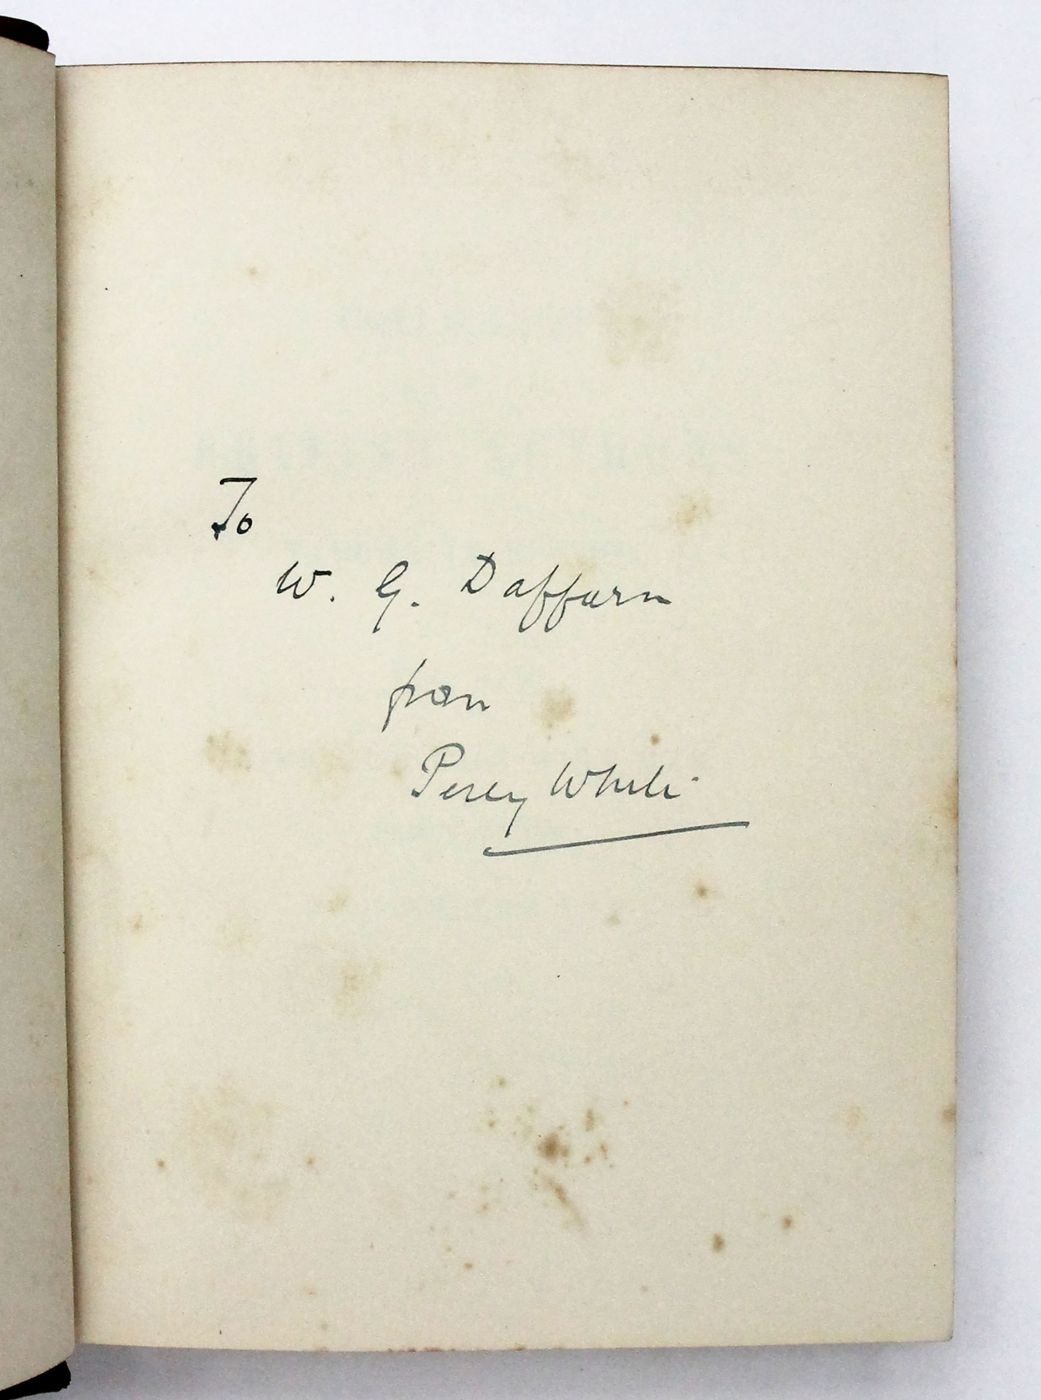 To
W. G. Daffarn
from
Percy White